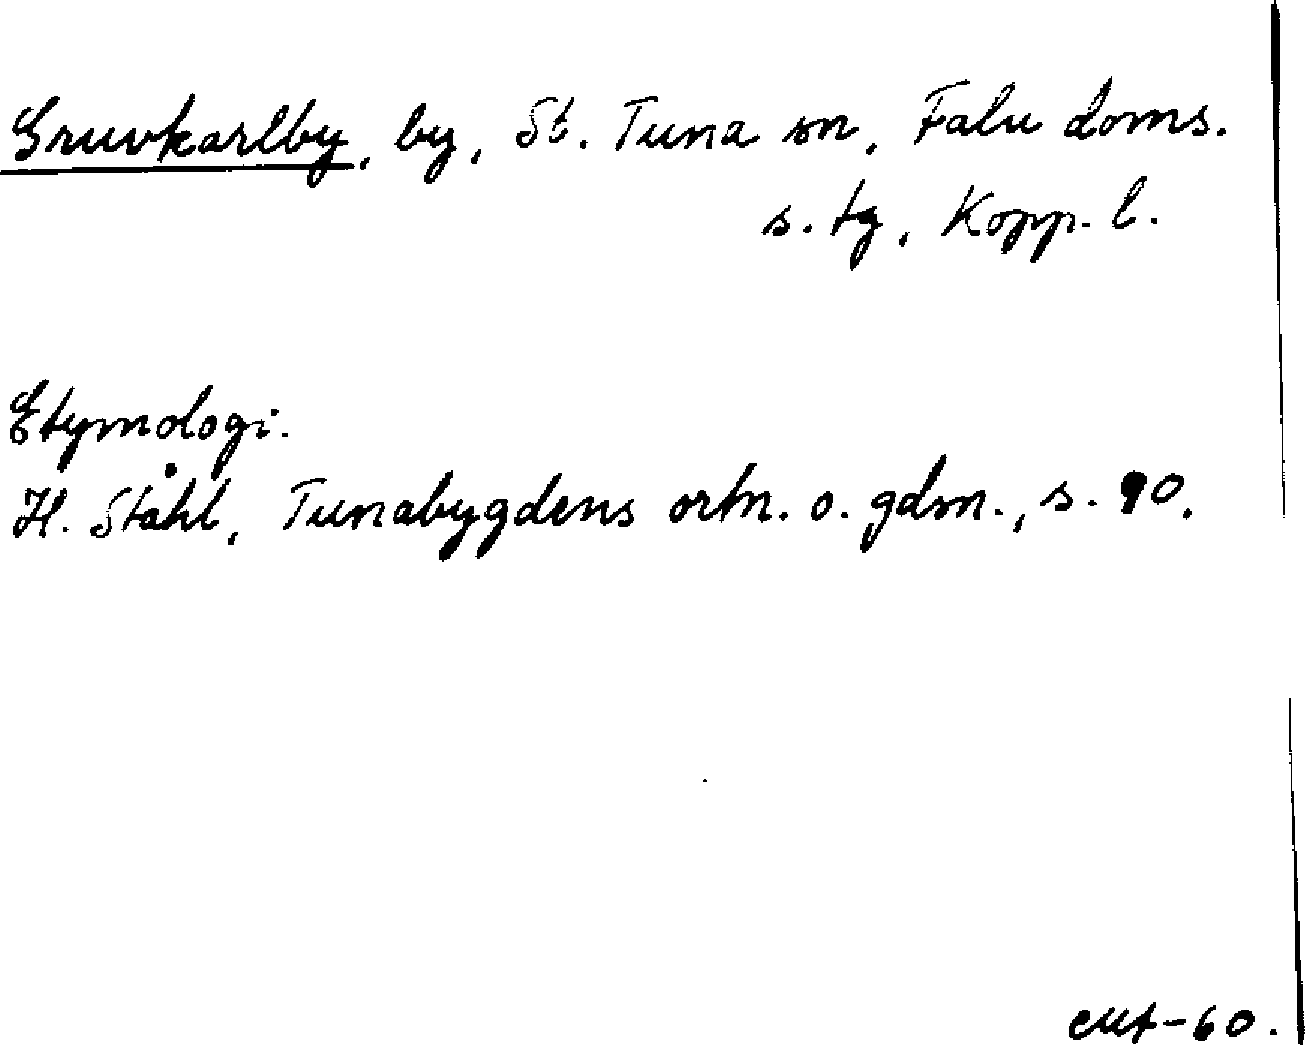 Gruvkarlby, by, St. Tuna sn, Falu doms.
s. tg, Kopp. l.
Etymologi.
H. Ståhl, Tunabygdens ortn. o. gdm., s. 90.
-60.